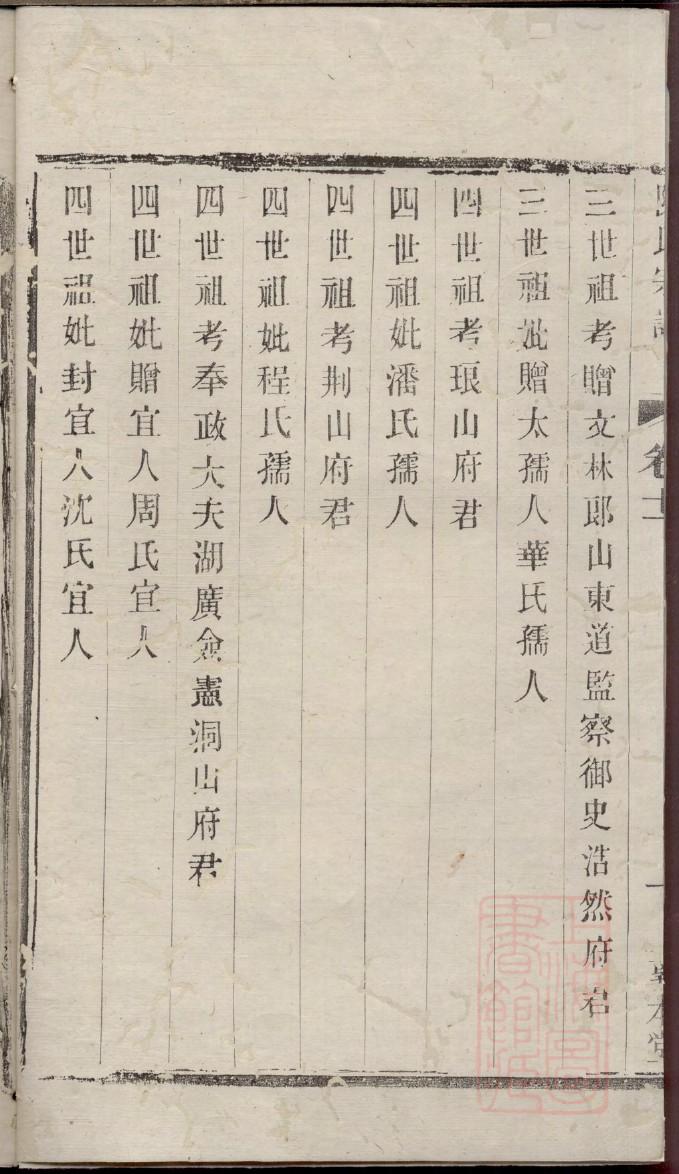 三世祖考贈文林郎山東道監察御史浩然府君
三世祖妣贈太孺人華氏孺人
四世祖考琅山府君
四世祖妣潘氏孺人
四世祖考荆山府君
四世祖妣程氏孺人
四世祖考奉政大夫湖廣僉憲洞山府君
四世祖妣贈宜人周氏宜人
四世祖妣封宜人沈氏宜人